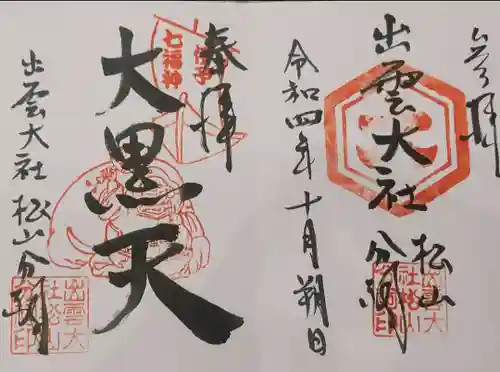 参拝
出雲大社
松山
分祠
出雲大
社松山
分祠印
令和四年十月朔日
奉拝
伊予
七福神
大黒天
出雲大
社松山
分祠印
出雲大社 松山分祠